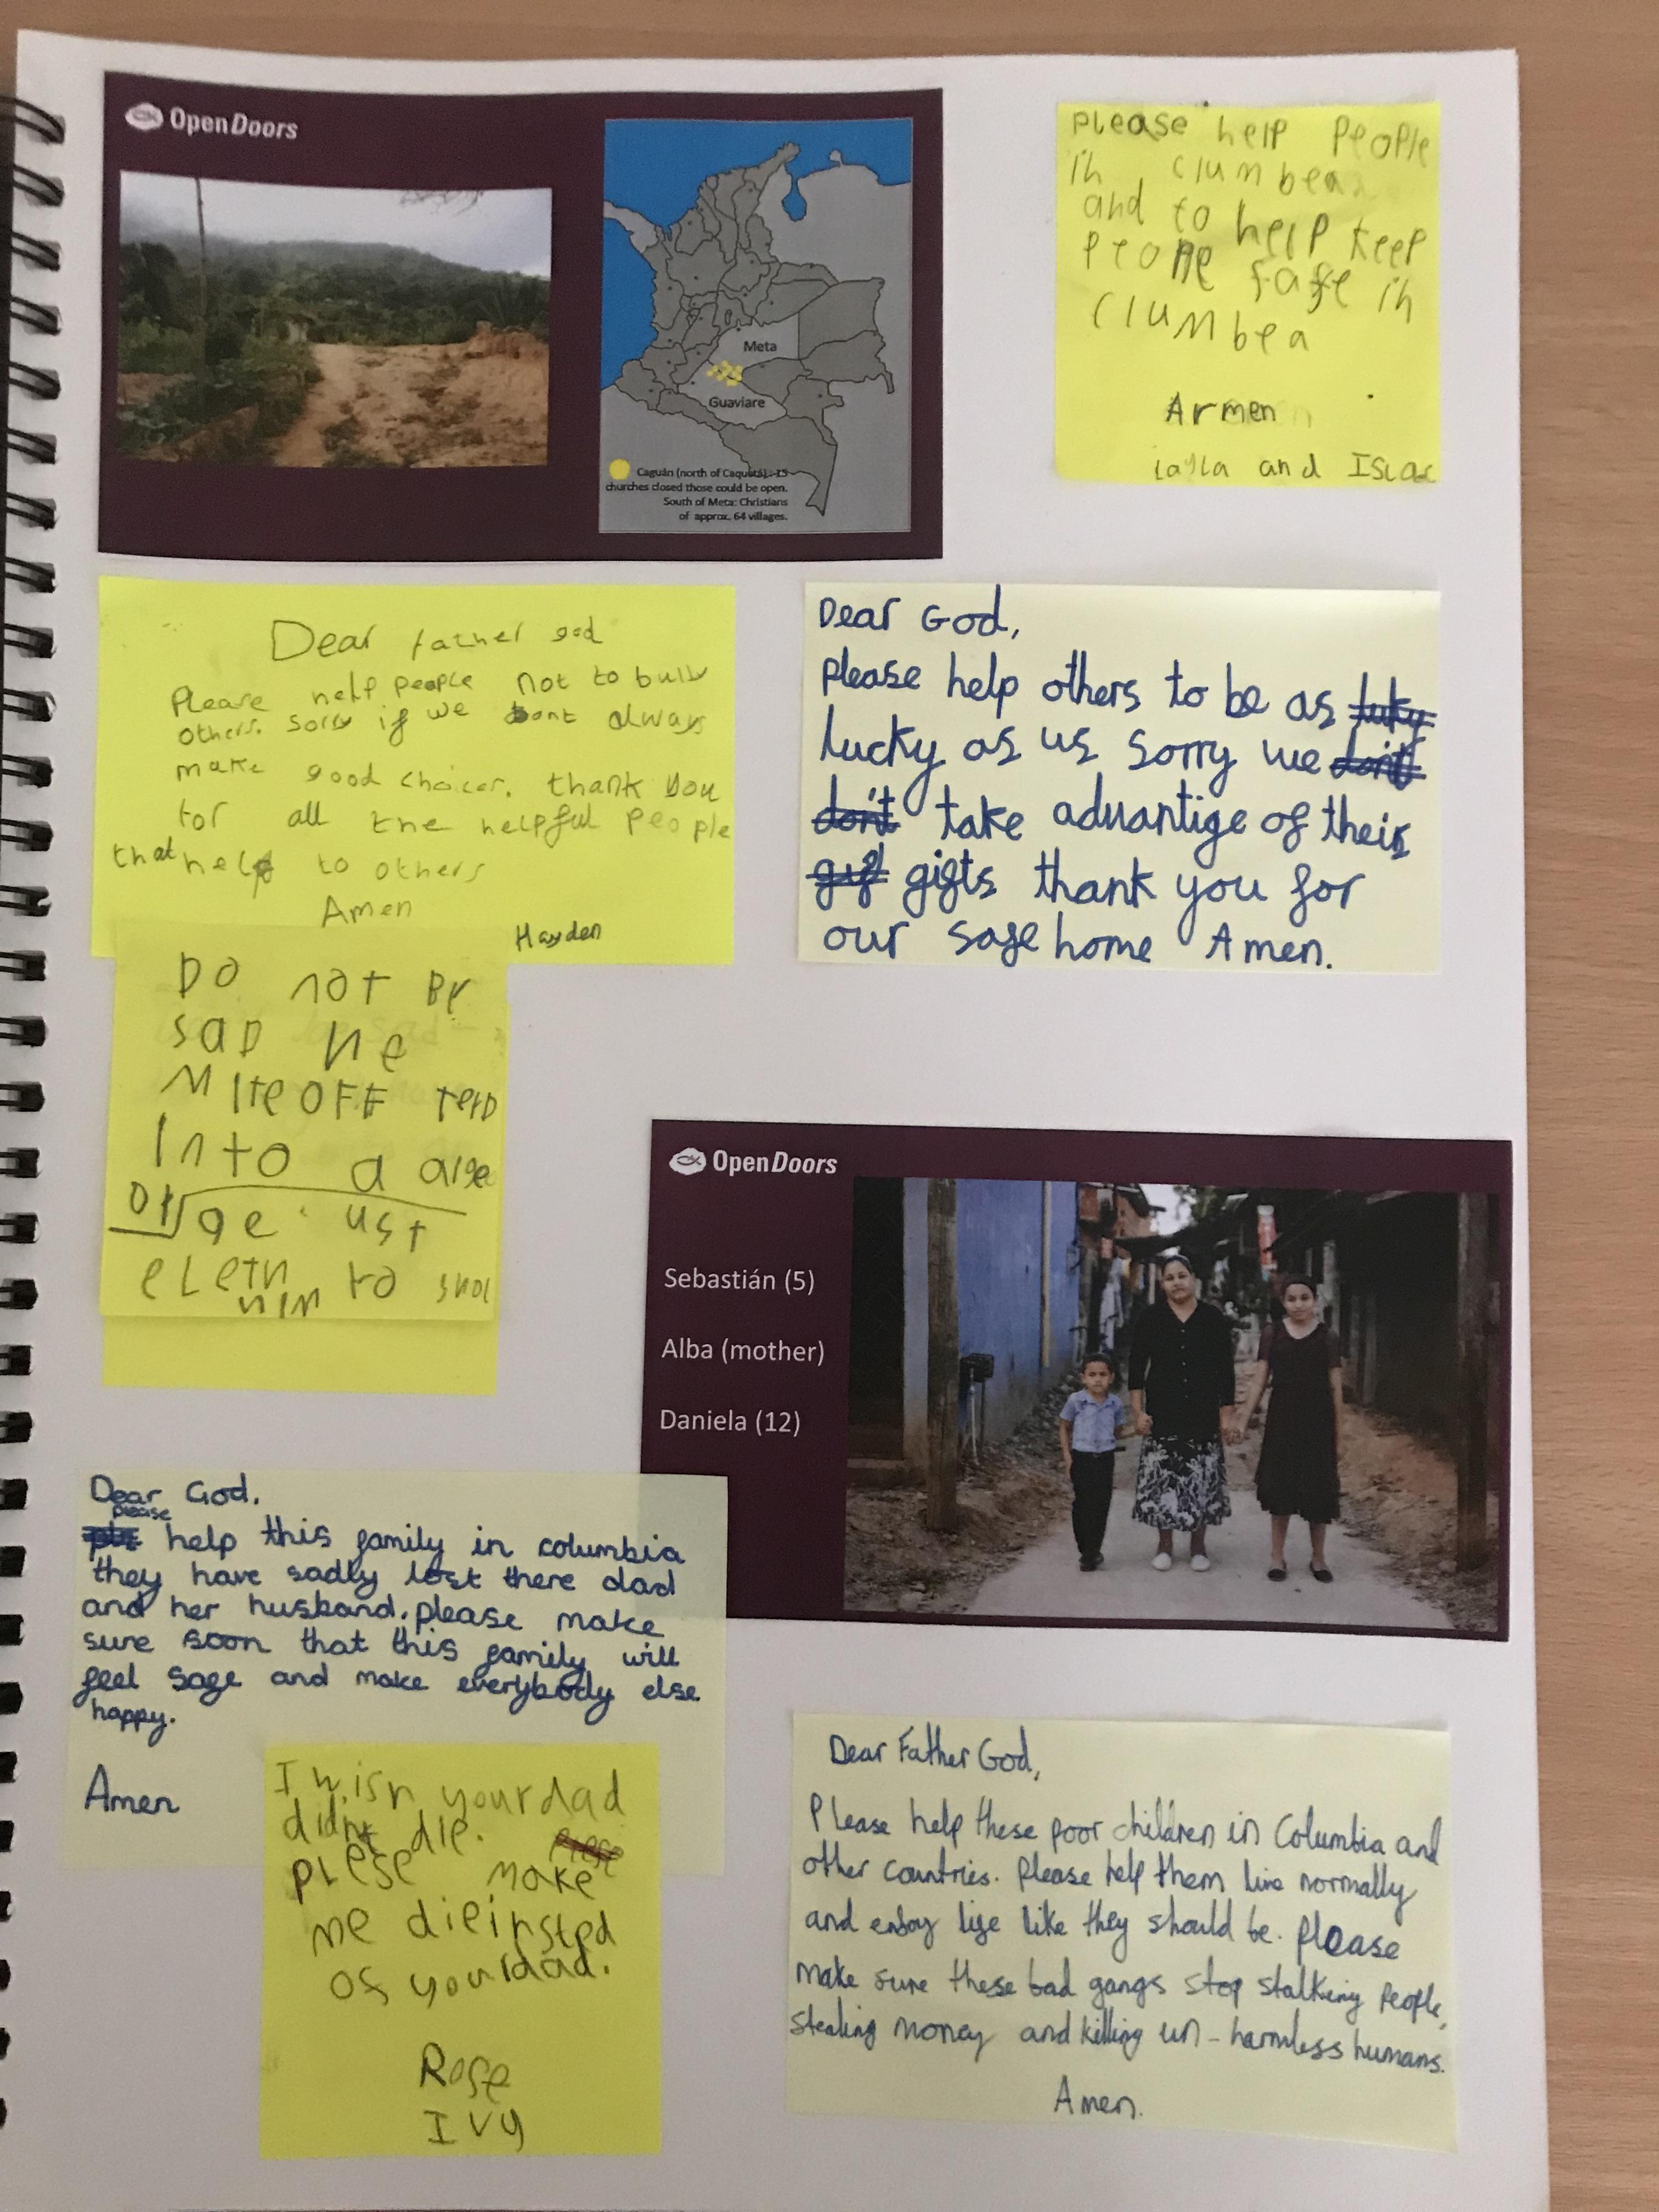 OpenDoors
Meta
Guaviare
Caguán (north of Caquetá): 15
churches closed those could be open.
South of Meta: Christians
of approx. 64 villages.
please help people
in clumbea
and to help keep
people safe in
clumbea
Armen
layla and
Dear father god
Please help people not to bully
others. sorry if we dont always
make good choices. thank you
for all the helpful people
that help to others
Amen
Hayden
Dear God,
please help others to be as
lucky as us sorry we
take advantige of their
gifts thank you for
our safe home Amen.
Do not By
saD he
Mite OFF
Into a
OpenDoors
Sebastián (5)
Alba (mother)
Daniela (12)
Dear God.
please
help this family in columbia
they have sadly lost there dad
and her husband. please make
sure soon that this family will
feel safe and make everybody else
happy.
Amen
I wish your dad
didnt die.
plese make
me die insted
of your dad.
Rose
Ivy
Dear Father God,
Please help these poor children in Columbia and
other countries. Please help them live normally
and enjoy life like they should be. please
make sure these bad gangs stop stalking people,
stealing money and killing un-harmless humans.
Amen.